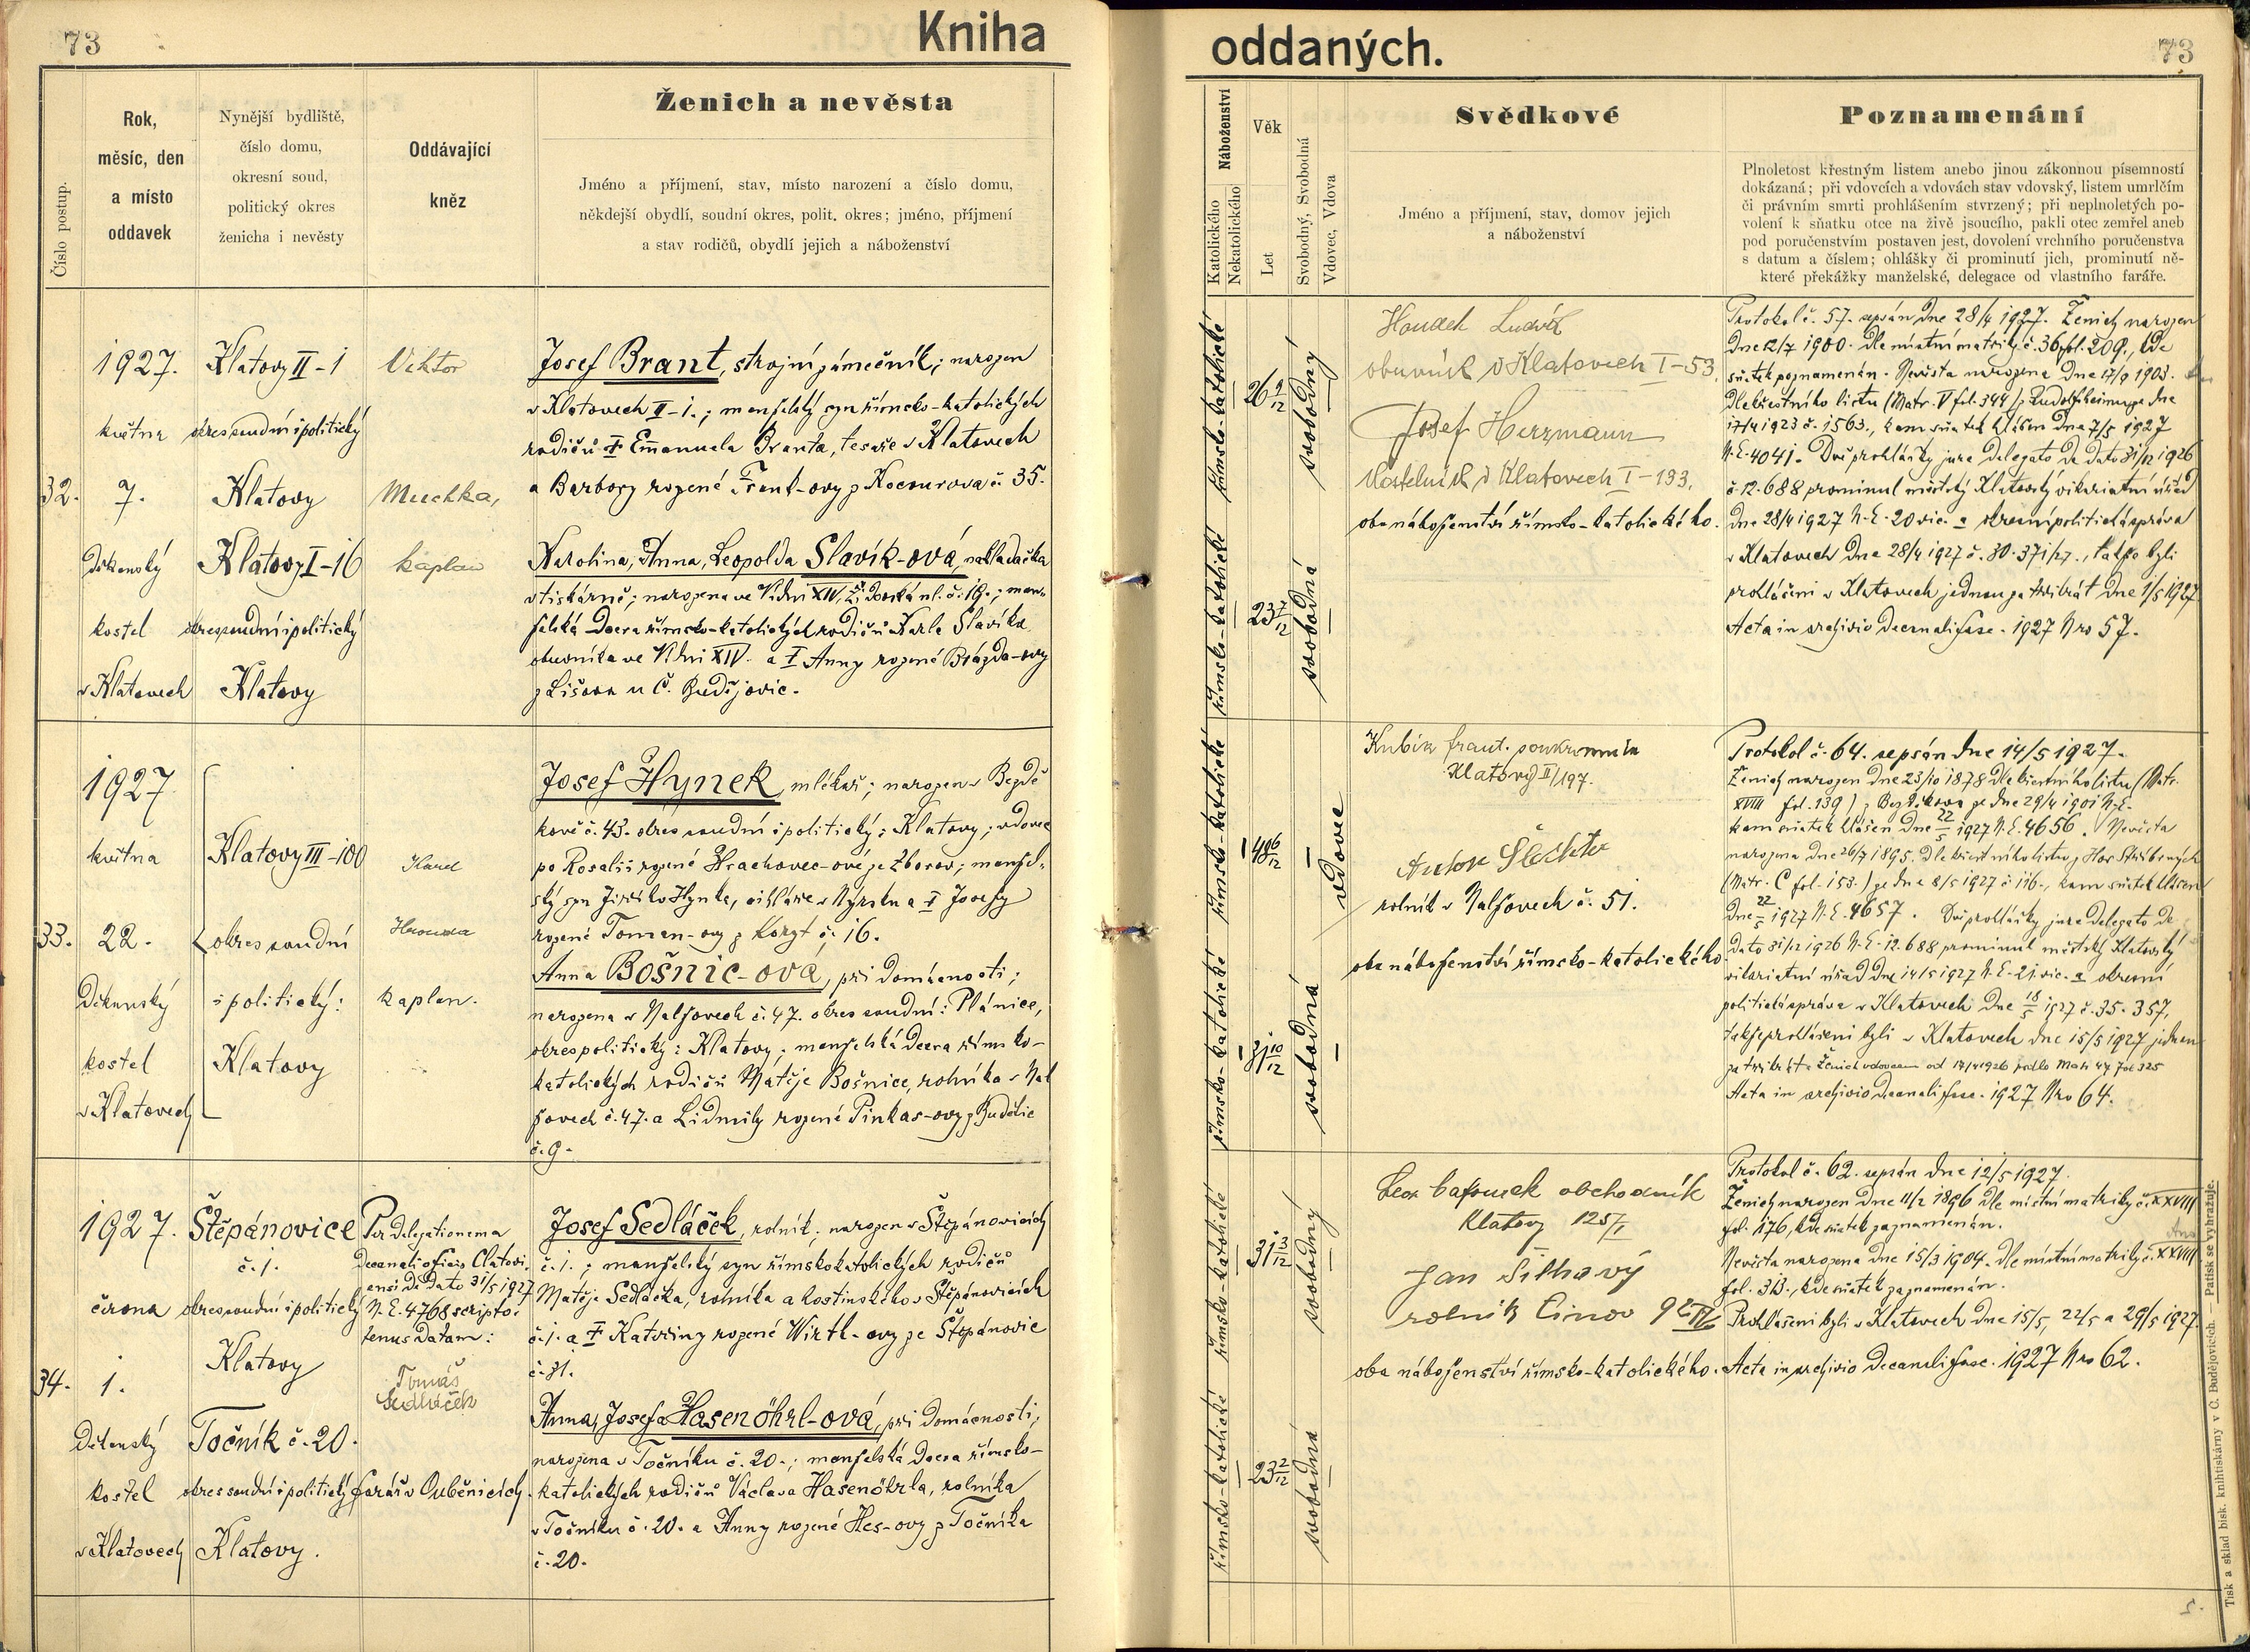 73
Kniha
Číslo postup.
Rok,
měsíc, den
a místo
oddavek
Nynější bydliště,
číslo domu,
okresní soud,
politický okres
ženicha i nevěsty
Oddávající
kněz
Ženich a nevěsta
Jméno a příjmení, stav, místo narození a číslo domu,
někdejší obydlí, soudní okres, polit. okres; jméno, příjmení
a stav rodičů, obydlí jejich a náboženství
32.
1927.
května
7.
Děkanský
kostel
v Klatovech
Klatovy II-1
okres soudní i politický
Klatovy
Klatovy I-16
okres soudní i politický
Klatovy
Viktor
Muchka,
kaplan
Josef Brant, strojní zámečník; narozen
v Klatovech II-1.; manželský syn římsko-katolických
rodičů † Emanuela Branta, tesaře v Klatovech
a Barbory rozené Trant-ovy z Kocourova č. 35.
Karolina, Anna, Leopolda Slavík-ová, nakladačka
v tiskárně; narozena ve Vídni XIV, č. 19.; man-
želská dcera římsko-katolických rodičů Karla Slavíka
obuvníka ve Vídni XIV. a † Anny rozené Brázda-ovy
z Lišova u Č. Budějovic.
33.
1927
května
22.
Děkanský
kostel
v Klatovech
Klatovy III-100
okres soudní
i politický:
Klatovy
Karel
Hrouda
kaplan.
Josef Hynek, mlékař; narozen v Bezdě
kově č. 43. okres soudní i politický: Klatovy; vdovec
po Rosalii rozené Hrachovec-ové ze Zborov; manžel-
ský syn Jiříka Hynka, cihláře v Nýrsku a † Josefy
rozené Toman-ovy z Koryt č. 16.
Anna Bošnic-ová, při domácnosti;
narozena v Nalžovech č. 47. okres soudní: Plánice,
okres politický: Klatovy; manželská dcera římsko-
katolických rodičů Matěje Bošnice, rolníka v Nal
žovech č. 47. a Lidmily rozené Pinkas-ovy z Budětic
č. 9.
34.
1927.
června
1.
Děkanský
kostel
v Klatovech
Štěpánovice
č. 1.
okres soudní i politický
Klatovy
Točník č. 20.
okres soudní i politický
Klatovy.
Per delegationem a
decanali officio Clatovi.
ensi de dato 31/5 1927
N. E. 4768 scripto-
tenus datam:
Tomáš
Sedláček
farář v Ouběnicích.
Josef Sedláček, rolník; narozen v Štěpánovicích
č. 1.; manželský syn římskokatolických rodičů
Matěje Sedláčka, rolníka a hostinského v Štěpánovicích
č. 1. a † Kateřiny rozené Wirtl-ovy ze Štěpánovic
č. 31.
Anna, Josefa Hasenöhrl-ová, při domácnosti;
narozena v Točníku č. 20.; manželská dcera římsko-
katolických rodičů Václava Hasenöhrla, rolníka
v Točníku č. 20. a Anny rozené Hes-ovy z Točníka
č. 20.
oddaných.
73
Náboženství
Katolického
Nekatolického
Věk
Let
Svobodný, Svobodná
Vdovec, Vdova
Svědkové
Jméno a příjmení, stav, domov jejich
a náboženství
Poznamenání
Plnoletost křestným listem anebo jinou zákonnou písemností
dokázaná; při vdovcích a vdovách stav vdovský, listem umrlčím
či právním smrti prohlášením stvrzený; při neplnoletých po-
volení k sňatku otce na živě jsoucího, pakli otec zemřel aneb
pod poručenstvím postaven jest, dovolení vrchního poručenstva
s datum a číslem; ohlášky či prominutí jich, prominutí ně-
které překážky manželské, delegace od vlastního faráře.
římsko-katolické
26 9/12
svobodný
římsko-katolické
23 7/12
svobodná
Ludvík
obuvník v Klatovech I-53.
Josef Herzmann
Kostelník v Klatovech I-133.
oba náboženství římsko-katolického.
Protokol č. 57. sepsán dne 28/4 1927. Ženich narozen
dne 12/7 1900. dle místní matriky č. 36, fol. 209., kde
sňatek poznamenán. Nevěsta narozena dne 17/9 1903.
dle křestního listu (Matr. V fol. 344) z Rudolfsheimu ze dne
17/4 1923 č. 1563., kam sňatek hlášen dne 7/5 1927
N. E. 4041. Dvě prohlášky jure delegato de dato 31/12 1926
č. 12.688 prominul městský Klatovský vikariatní úřad
dne 28/4 1927 N. E. 20 vic. a okresní politická správa
v Klatovech dne 28/4 1927 č. 30.371/27., takže byli
prohlášeni v Klatovech jednou za třikrát dne 1/5 1927.
Acta in archivio decanali fasc. 1927 Nro 57.
římsko-katolické
48 6/12
vdovec
římsko-katolické
31 10/12
svobodná
Kubík Frant. soukromník
Klatovy II/197.
Anton Šlechta
rolník v Nalžovech č. 51.
oba náboženství římsko-katolického.
Protokol č. 64. sepsán dne 14/5 1927.
Ženich narozen dne 23/10 1878 dle křestního listu (Matr.
XVIII fol. 139) z Bezděkova ze dne 29/4 1901 N. E.
kam sňatek hlášen dne 22/5 1927 N. E. 4656. Nevěsta
narozena dne 26/7 1895. dle křestního listu z Hor Stříbrných
(Matr. C fol. 153.) ze dne 8/5 1927 č. 116., kam sňatek hlášen
dne 22/5 1927 N. E. 4657. Dvě prohlášky jure delegato de
dato 31/12 1926 N. E. 12.688 prominul městský Klatovský
vikariatní úřad dne 14/5 1927 N. E. 21 vic. a okresní
politická správa v Klatovech dne 18/5 1927 č. 35.357,
takže prohlášeni byli v Klatovech dne 15/5 1927 jednou
za třikrát. Ženich vdovcem od 17/4 1926 podle Matr 47 fol 325
Acta in archivio decanali fasc. 1927 Nro 64.
římsko-katolické
31 3/12
svobodný
římsko-katolické
23 2/12
svobodná
obchodník
Klatovy 125/I
Jan Šilhavý
rolník Činov 9
oba náboženství římsko-katolického.
Protokol č. 62. sepsán dne 12/5 1927.
Ženich narozen dne 11/2 1896 dle místní matriky č. XXVIII
fol. 176, kde sňatek zaznamenán.
Nevěsta narozena dne 15/3 1904. dle místní matriky č. XXVIII
fol. 313., kde sňatek zaznamenán.
Prohlášeni byli v Klatovech dne 15/5, 22/5 a 29/5 1927.
Acta in archivio decanali fasc. 1927 Nro 62.
Tisk a sklad bisk. knihtiskárny v Č. Budějovicích. — Patisk se vyhražuje.